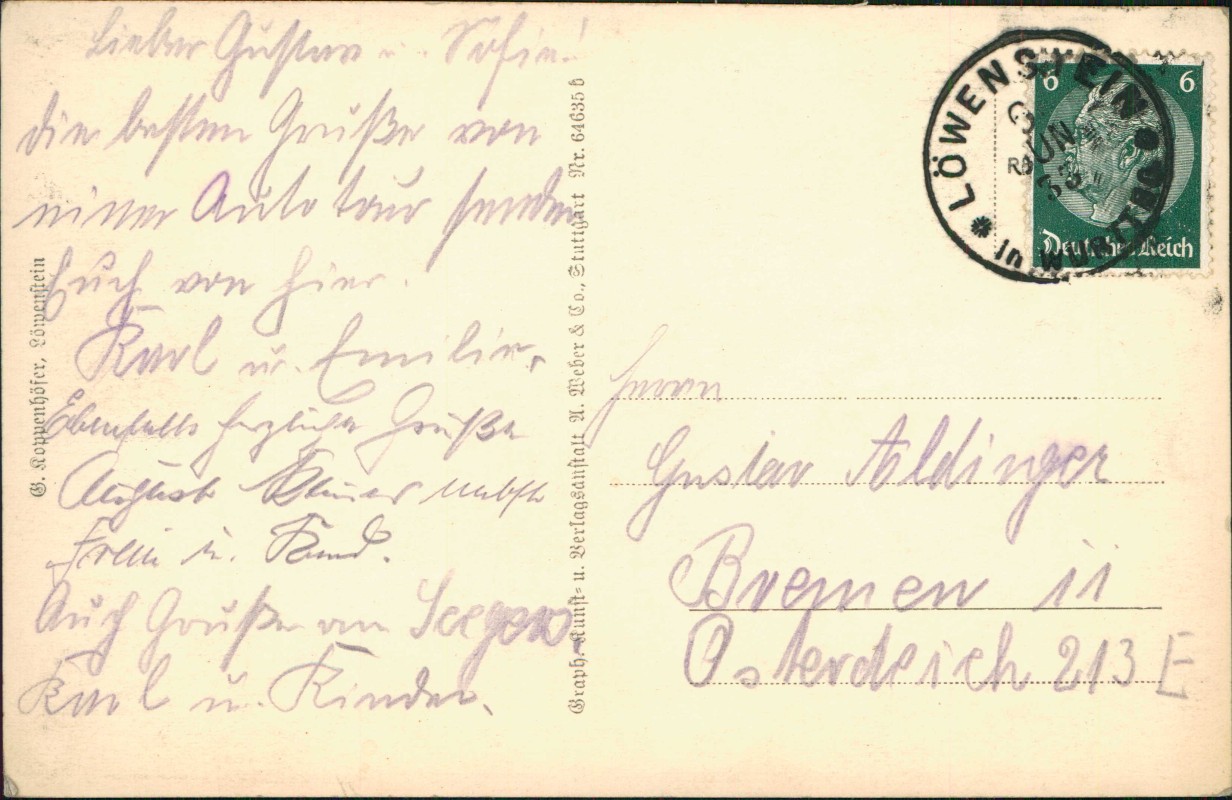 Lieber Gustav u. Sofie!
die besten Grüße von
einer Autotour senden
Euch von hier.
Karl u. Emilie.
Ebenfalls herzliche Grüße
August nebst
Frau u. Kind.
Auch Grüße an Seeger,
Karl u. Kinder.
G. Koppenhöfer, Löwenstein
Graph. Kunst- u. Verlagsanstalt A. Weber & Co., Stuttgart Nr. 64635 b
LÖWENSTEIN
JUN
33
in WÜRTTBG
6 6
Deutsches Reich
Herrn
Gustav Aldinger
Bremen II
Osterdeich 213 E